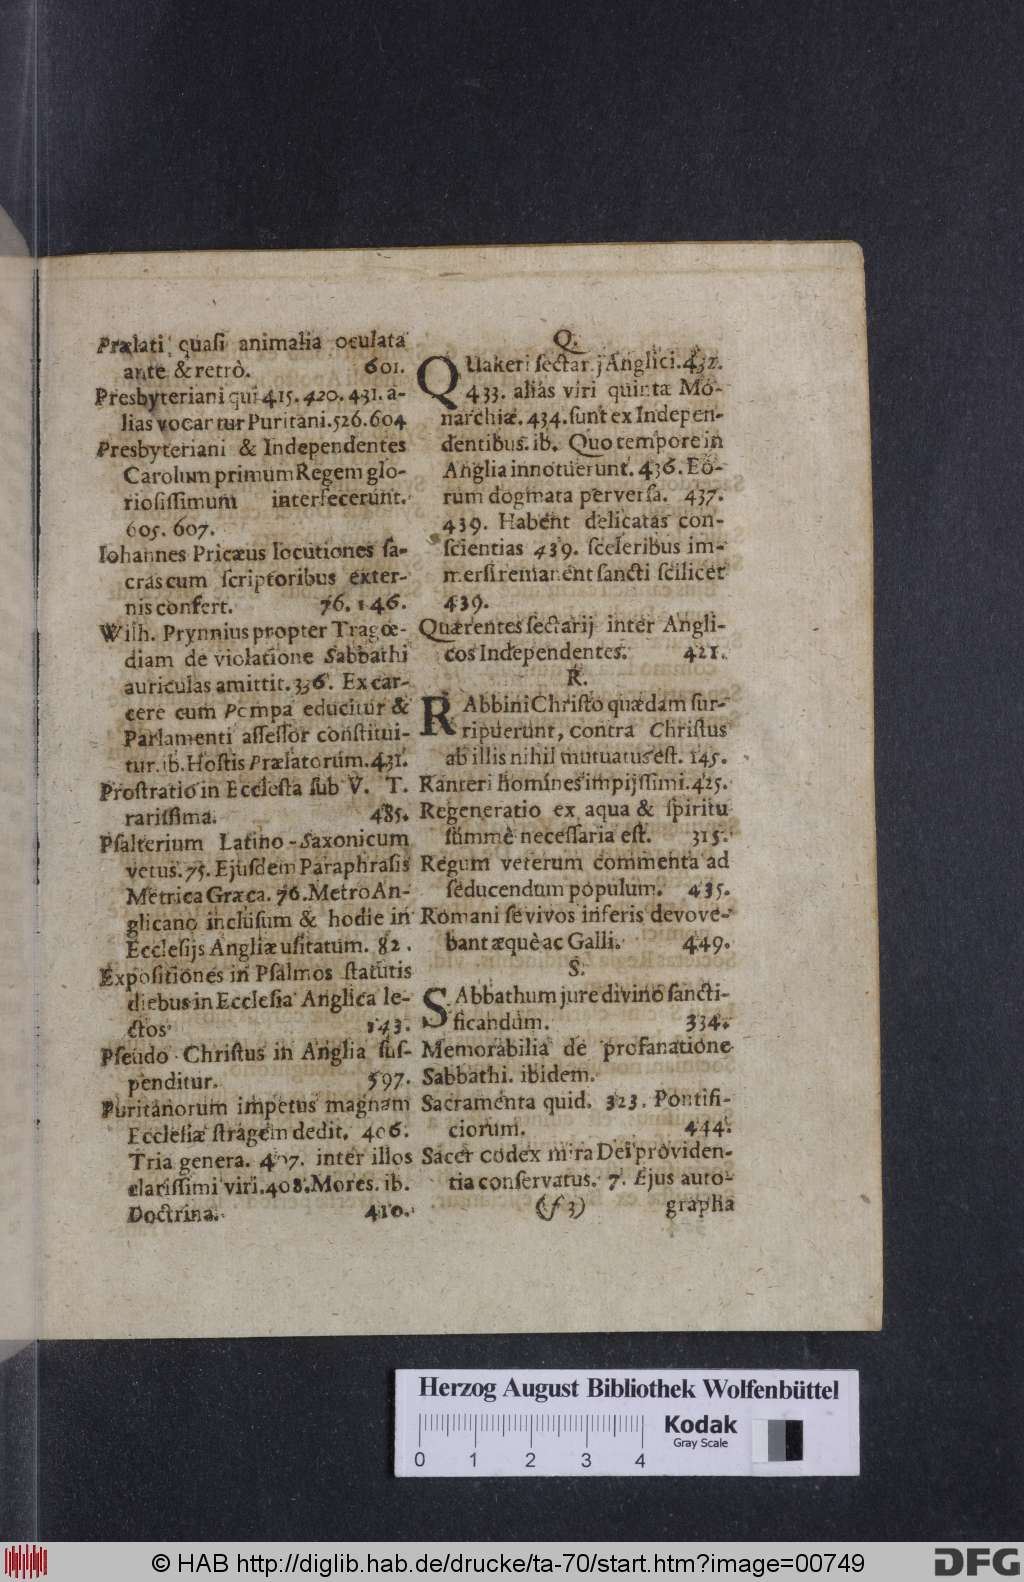 Prælati quasi animalia oculata
ante & retrò. 601.
Presbyteriani qui 415. 420. 431. a-
lias vocantur Puritani. 526. 604
Presbyteriani & Independentes
Carolum primum Regem glo-
riosissimum interfecerunt.
605. 607.
Iohannes Pricæus locutiones sa-
cras cum scriptoribus exter-
nis confert. 76. 146.
Wilh. Prynnius propter Tragœ-
diam de violatione Sabbathi
auriculas amittit. 336. Ex car-
cere cum Pompa educitur &
Parlamenti assessor constitui-
tur. ib. Hostis Prælatorum. 431.
Prostratio in Ecclesia sub V. T.
rarissima. 485.
Psalterium Latino-Saxonicum
vetus. 75. Ejusdem Paraphrasis
Metrica Græca. 76. Metro An-
glicano inclusum & hodie in
Ecclesijs Angliæ usitatum. 82.
Expositiones in Psalmos statutis
diebus in Ecclesia Anglica le-
ctos 143.
Pseudo-Christus in Anglia sus-
penditur. 597.
Puritanorum impetus magnam
Ecclesiæ stragem dedit. 406.
Tria genera. 407. inter illos
clarissimi viri. 408. Mores. ib.
Doctrina. 410.
Q.
QUakeri sectarij Anglici. 432.
433. aliàs viri quintæ Mo-
narchiæ. 434. sunt ex Indepen-
dentibus. ib. Quo tempore in
Anglia innotuerunt. 436. Eo-
rum dogmata perversa. 437.
439. Habent delicatas con-
scientias 439. sceleribus im-
mersi remanent sancti scilicet
439.
Quærentes sectarij inter Angli-
cos Independentes. 421.
R.
RAbbini Christo quædam sur-
ripuerunt, contra Christus
ab illis nihil mutuatus est. 145.
Ranteri homines impijssimi. 425.
Regeneratio ex aqua & spiritu
summè necessaria est. 315.
Regum veterum commenta ad
seducendum populum. 435.
Romani se vivos inferis devove-
bant æquè ac Galli. 449.
S.
SAbbathum jure divino sancti-
ficandum. 334.
Memorabilia de profanatione
Sabbathi. ibidem.
Sacramenta quid. 323. Pontifi-
ciorum. 444.
Sacer codex mira Dei providen-
tia conservatus. 7. Ejus auto-
(f 3) grapha
Herzog August Bibliothek Wolfenbüttel
Kodak
Gray Scale
0 1 2 3 4
© HAB http://diglib.hab.de/drucke/ta-70/start.htm?image=00749
DFG